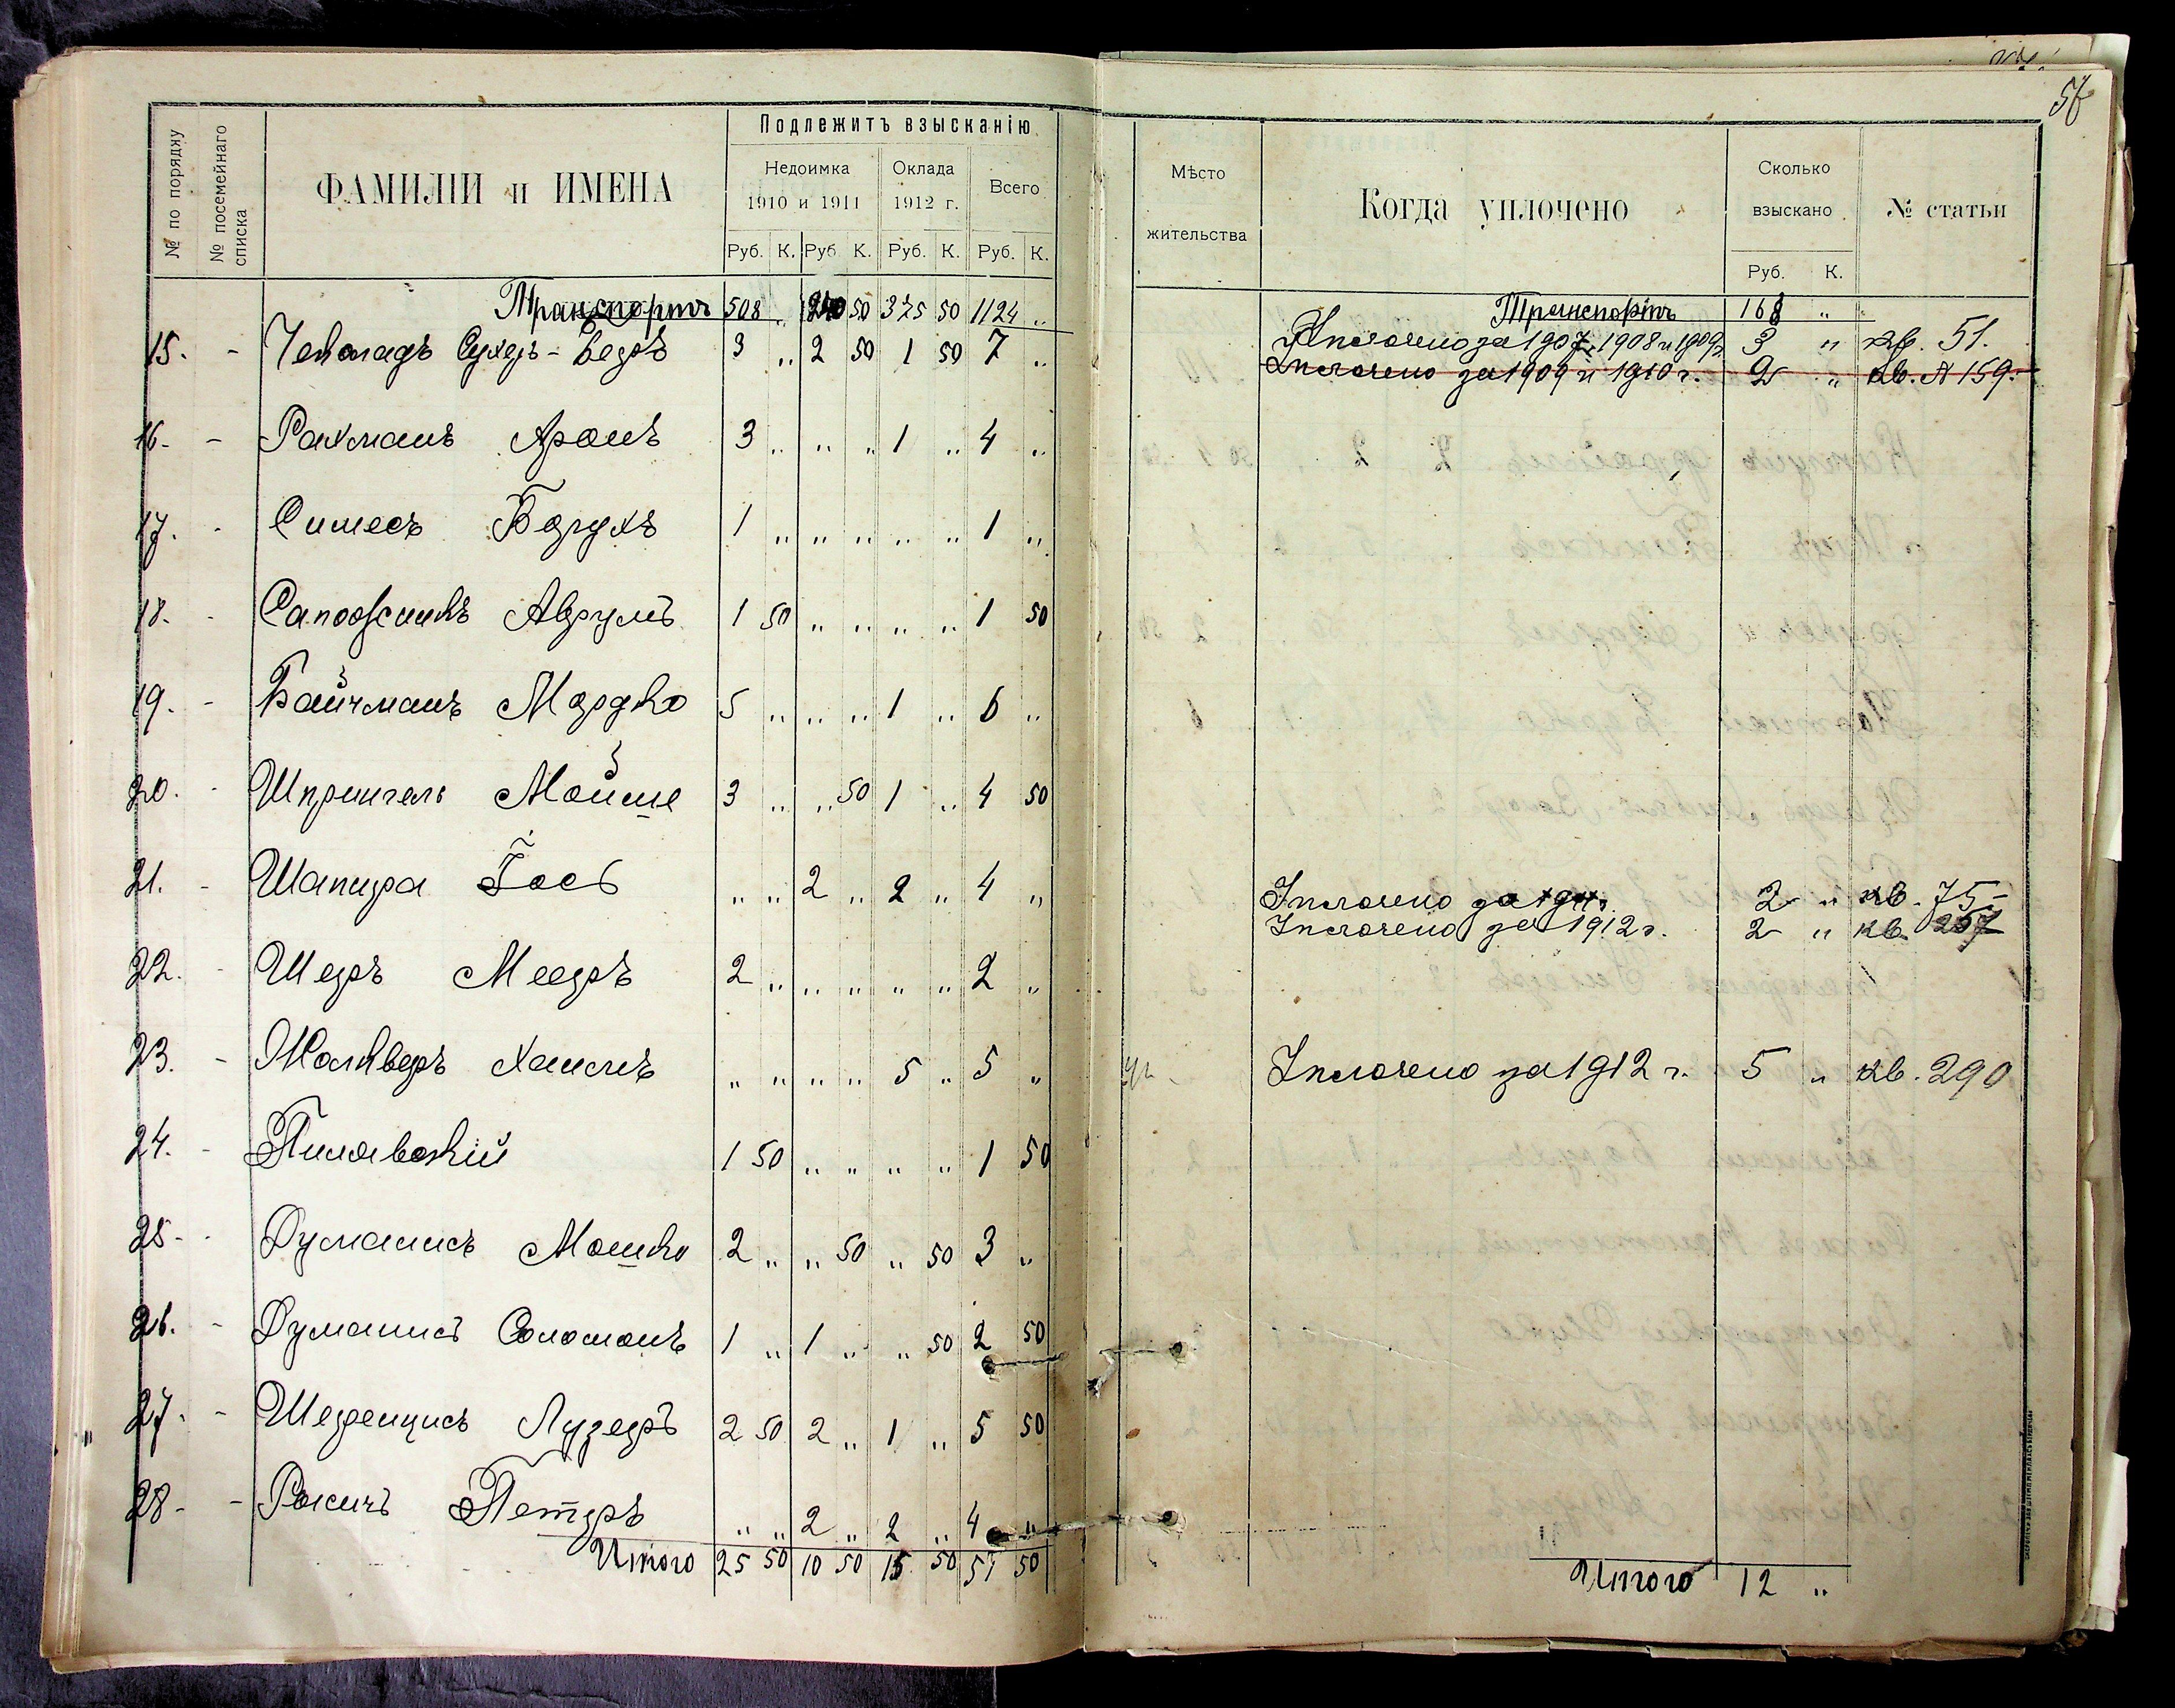 57.
№ по порядку
№ посемейнаго списка
ФАМИЛІИ и ИМЕНА
Подлежитъ взысканію
Недоимка 1910 и 1911
Оклада 1912 г.
Всего
Руб. К. Руб. К. Руб. К. Руб. К.
Мѣсто жительства
Когда уплочено
Сколько взыскано
Руб. К.
№ статьи
Транспортъ 508 „ 290 50 325 50 1124 „ Транспортъ 168 „ „
15. - Сухеръ-Беръ 3 „ 2 50 1 50 7 „ Уплочено за 1907, 1908 и 1909 г. 3 „ кв. 51.
Уплочено за 1909 и 1910 г. 2 „ кв. № 159.
16. - Рахманъ Аронъ 3 „ „ „ 1 „ 4 „
17. - Симесъ Борухъ 1 „ „ „ „ „ 1 „
18. - Сапожникъ Аврумъ 1 50 „ „ „ „ 1 50
19. - Байчманъ Мордко 5 „ „ „ 1 „ 6 „
20. - Шпрингель Мойше 3 „ „ 50 1 „ 4 50
21. - Шапира Іось „ „ 2 „ 2 „ 4 „ Уплочено за 1911 г. 2 „ кв. 75
Уплочено за 1912 г. 2 „ кв. 257
22. - Шеръ Мееръ 2 „ „ „ „ „ 2 „
23. - Хаимъ „ „ „ „ 5 „ 5 „ Уплочено за 1912 г. 5 „ кв. 290
24. - Пилявскій 1 50 „ „ „ „ 1 50
25. - Думанисъ Мошко 2 „ „ 50 „ 50 3 „
26. - Думанисъ Соломонъ 1 „ 1 „ „ 50 2 50
27. - Лузеръ 2 50 2 „ 1 „ 5 50
28. - Петръ „ „ 2 „ 2 „ 4 „
Итого 25 50 10 50 15 50 51 50 Итого 12 „